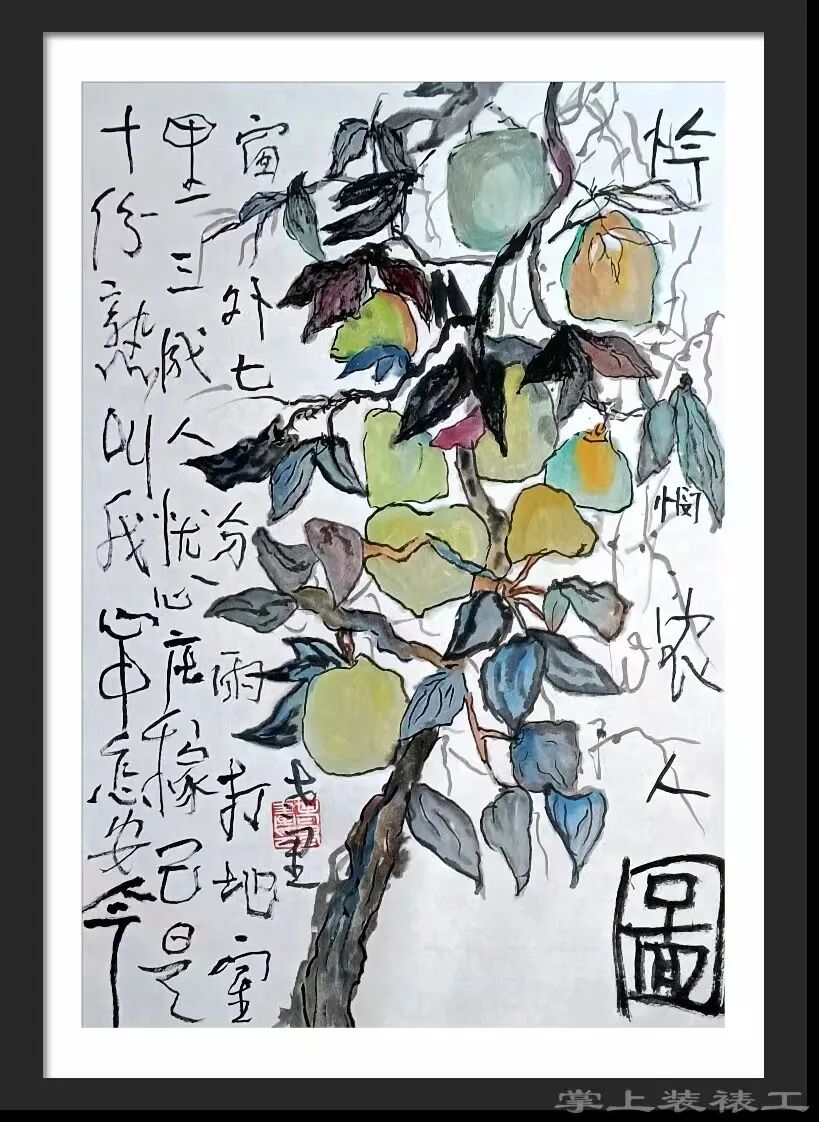 怜悯农人圖
窗外七分雨打地室
里三成人忧心庄稼已是
十份熟叫我心中怎安今
掌上装裱工